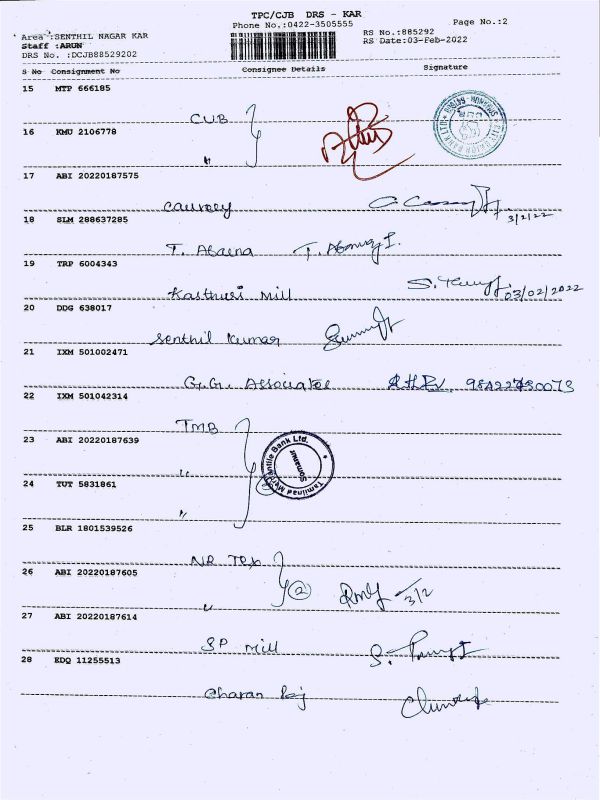 TPC/CJB DRS - KAR
Phone No.:0422-3505555
Page No.:2
Area :SENTHIL NAGAR KAR
Staff :ARUN
DRS No. :DCJB88529202
RS No.:885292
RS Date:03-Feb-2022
S No Consignment No Consignee Details Signature
15 MTP 666185
CUB
16 KMU 2106778
"
17 ABI 20220187575
Cauvery
3/2/22
18 SLM 288637285
T.
19 TRP 6004343
Kasthuri Mill
03/02/2022
20 DDG 638017
Senthil Kumar
21 IXM 501002471
G.G. Associates
22 IXM 501042314
TMB
23 ABI 20220187639
"
Tamilnad Mercantile Bank Ltd.
Somanur
24 TUT 5831861
"
25 BLR 1801539526
NR Tex
26 ABI 20220187605
"
2
3/2
27 ABI 20220187614
SP Mill
28 EDQ 11255513
Charan Raj